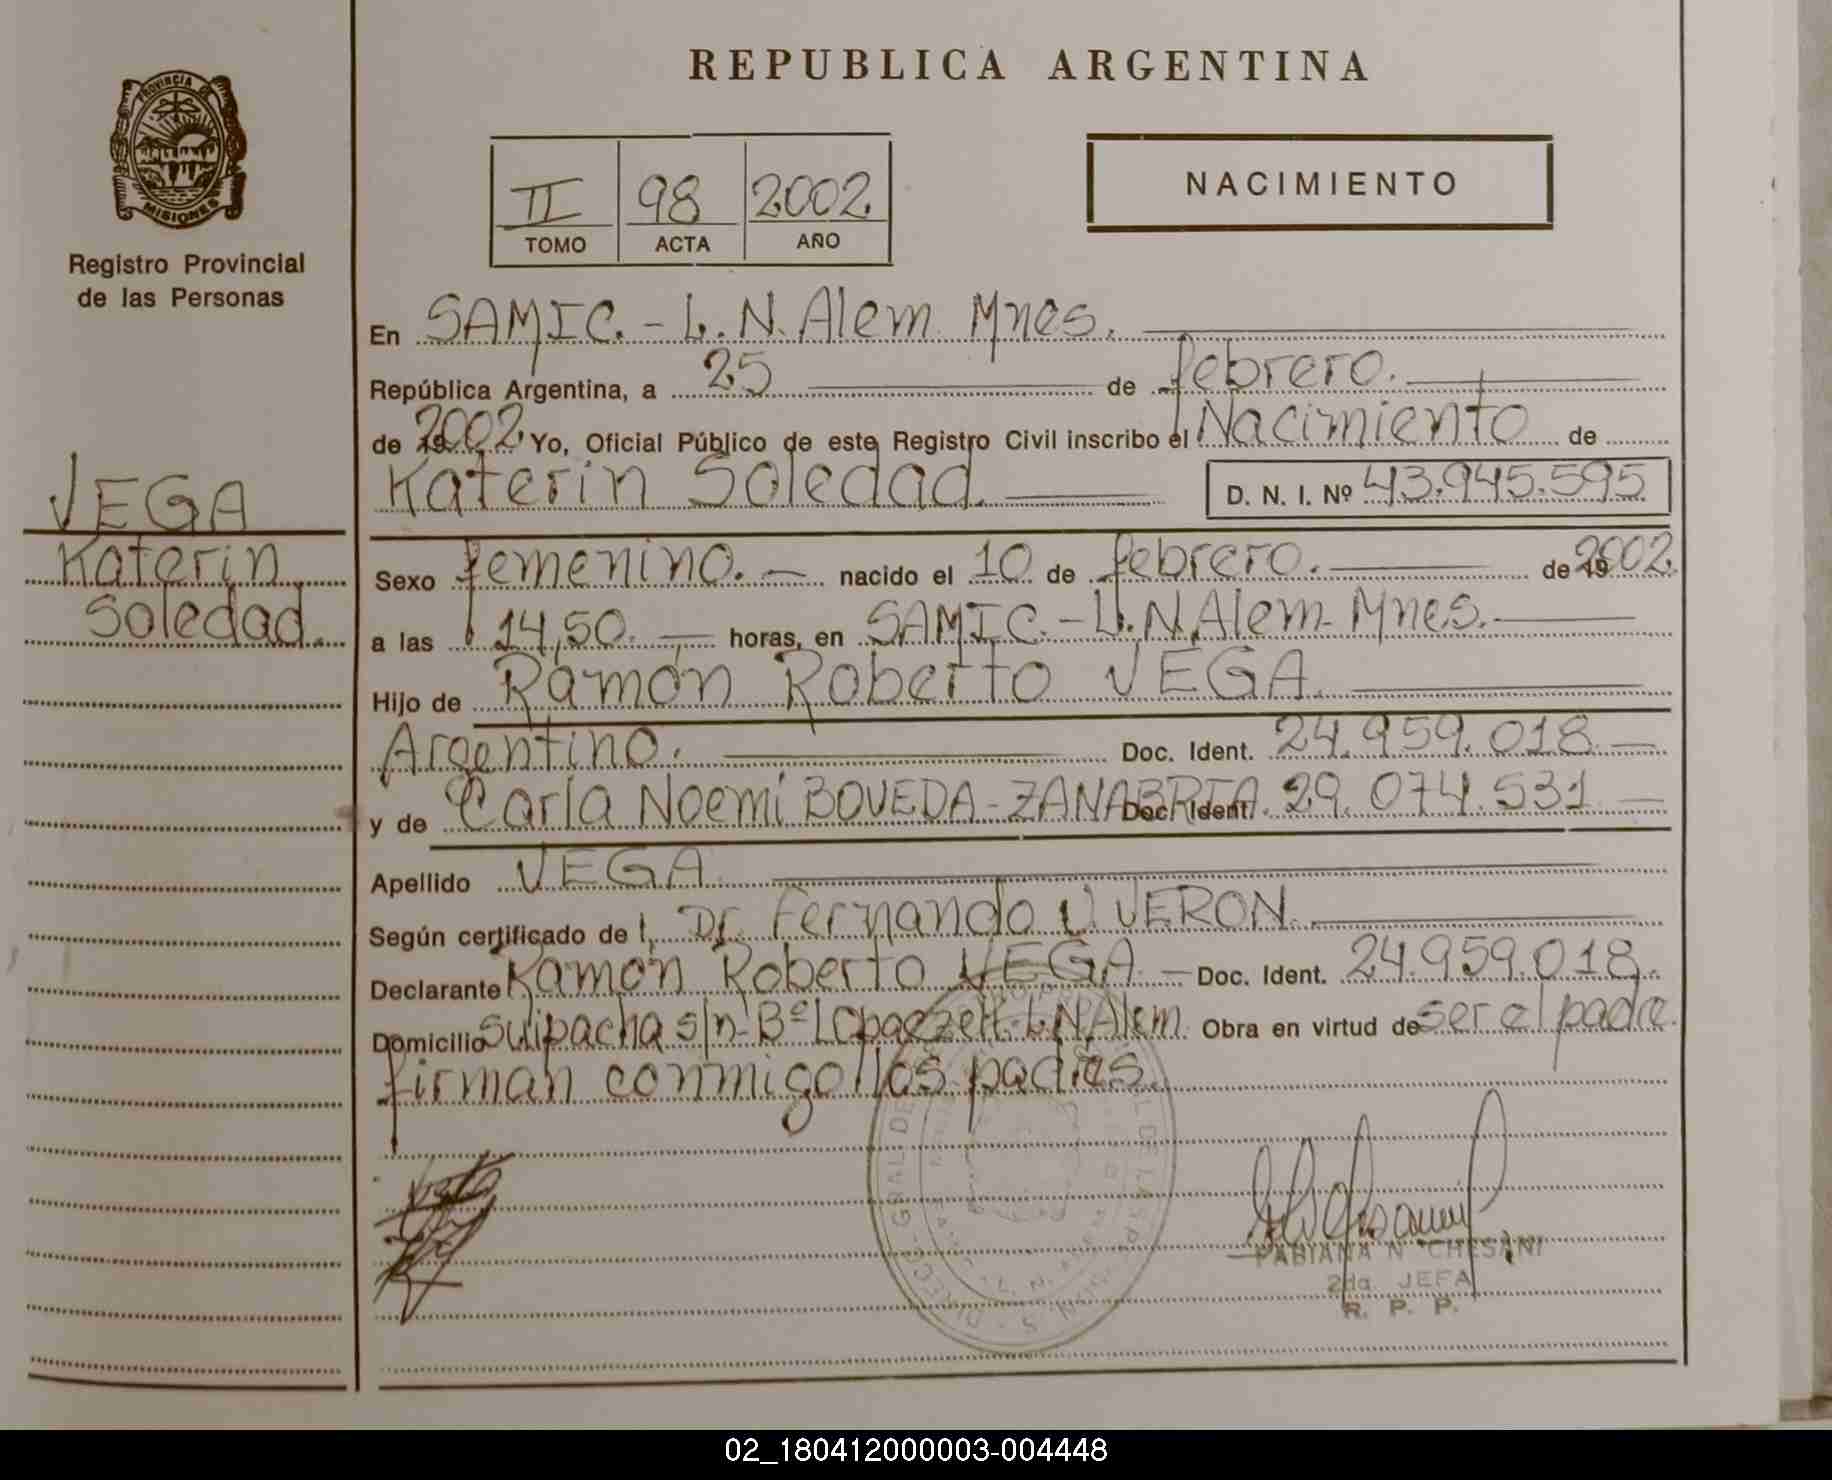 REPUBLICA ARGENTINA
PROVINCIA DE
MISIONES
Registro Provincial
de las Personas
II 98 2002
TOMO ACTA AÑO
NACIMIENTO
VEGA
Katerin
Soledad.
En SAMIC. - L.N. Alem Mnes.
República Argentina, a 25 de febrero.
de 2002 Yo, Oficial Público de este Registro Civil inscribo el Nacimiento de
Katerin Soledad. D. N. I. Nº 43.945.595
Sexo femenino. - nacido el 10 de febrero. de 2002.
a las 14,50. - horas, en SAMIC. - L.N. Alem Mnes.
Hijo de Ramón Roberto VEGA.
Argentino. Doc. Ident. 24.959.018 -
y de Carla Noemí BOVEDA - ZANABRIA Doc. Ident. 29.074.531 -
Apellido VEGA
Según certificado de l, Dr. Fernando V. VERON.
Declarante Ramón Roberto VEGA - Doc. Ident. 24.959.018.
Domicilio Suipacha s/n Bº L.N. Alem. Obra en virtud de ser el padre.
firman conmigo los padres.
FABIANA N. CHESANI
2da. JEFA
R. P. P.
02_180412000003-004448